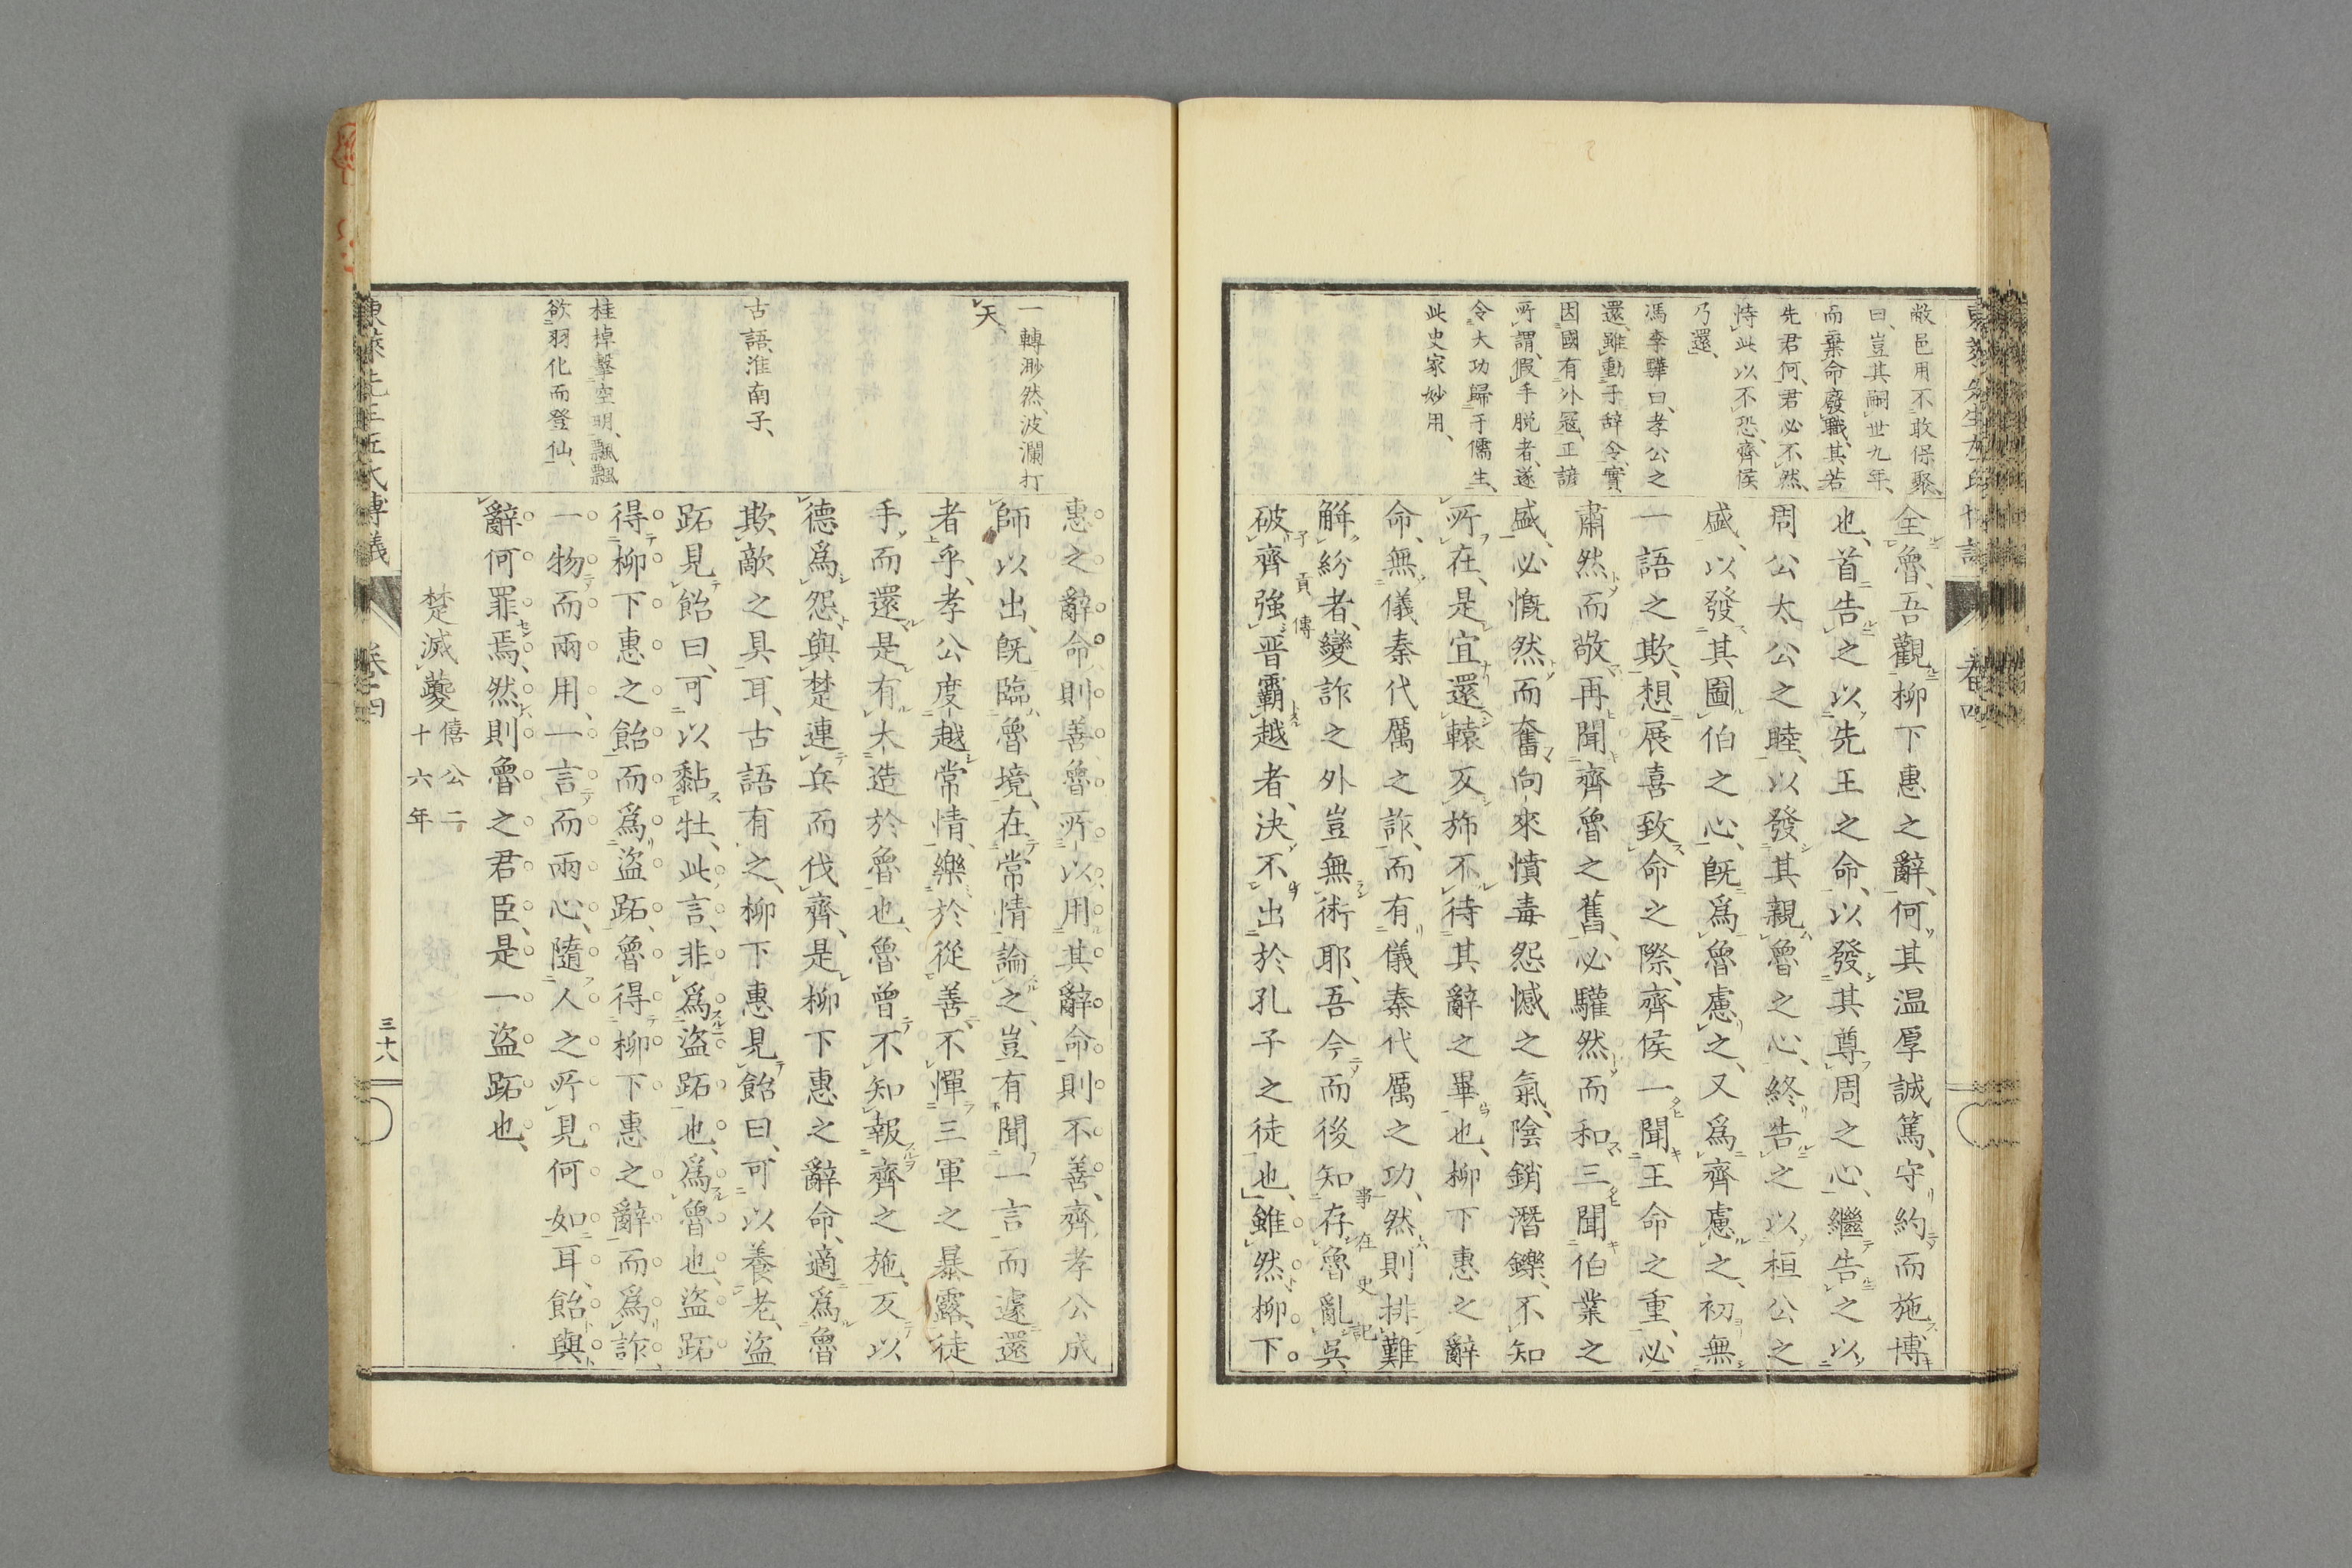 敝邑用不敢保聚、
曰、豈其嗣世九年、
而棄命廢職、其若
先君何、君必不然、
恃此以不恐、齊侯
乃還、
馮李驊曰、孝公之
還、雖動于辞令、實
因國有外寇、正諺
所謂、假手脱者、遂
令大功歸于儒生、
此史家妙用、
全魯、吾觀柳下惠之辭、何其温厚誠篤、守約而施博
也、首告之以先王之命、以發其尊周之心、繼告之以
周公太公之睦、以發其親魯之心、終告之以桓公之
盛、以發其圖伯之心、既爲魯慮之、又爲齊慮之、初無
一語之欺、想展喜致命之際、齊侯一聞王命之重、必
肅然而敬、再聞齊魯之舊、必驩然而和、三聞伯業之
盛、必慨然而奮、向來憤毒怨憾之氣、陰銷潛鑠、不知
所在、是宜還轅反斾、不待其辭之畢也、柳下惠之辭
命、無儀秦代厲之詐、而有儀秦代厲之功、然則排難
解紛者、變詐之外豈無術耶、吾今而後知存魯亂吳
事在史記
子貢傳
破齊強晋霸越者、決不出於孔子之徒也、」雖然、柳下
東萊先生左氏博議
卷四
一轉渺然、波瀾打
天、
古語、淮南子、
桂掉擊空明、飄飄
欲羽化而登仙、
惠之辭命、則善、魯所以用其辭命、則不善、齊孝公成
師以出、既臨魯境、在常情論之、豈有聞一言而遽還
者乎、孝公度越常情、樂於從善、不憚三軍之暴露、徒
手而還、是有大造於魯也、魯曾不知報齊之施、反以
德爲怨、與楚連兵而伐齊、是柳下惠之辭命、適爲魯
欺敵之具耳、古語有之、柳下惠見飴曰、可以養老、盜
跖見飴曰、可以黏牡、此言、非爲盜跖也、爲魯也、盜跖
得柳下惠之飴而爲盜跖、魯得柳下惠之辭而爲詐、
一物而兩用、一言而兩心、隨人之所見何如耳、飴與
辭何罪焉、然則魯之君臣、是一盜跖也、
楚滅夔僖公二十六年
三十八
東萊先生左氏博議
卷四